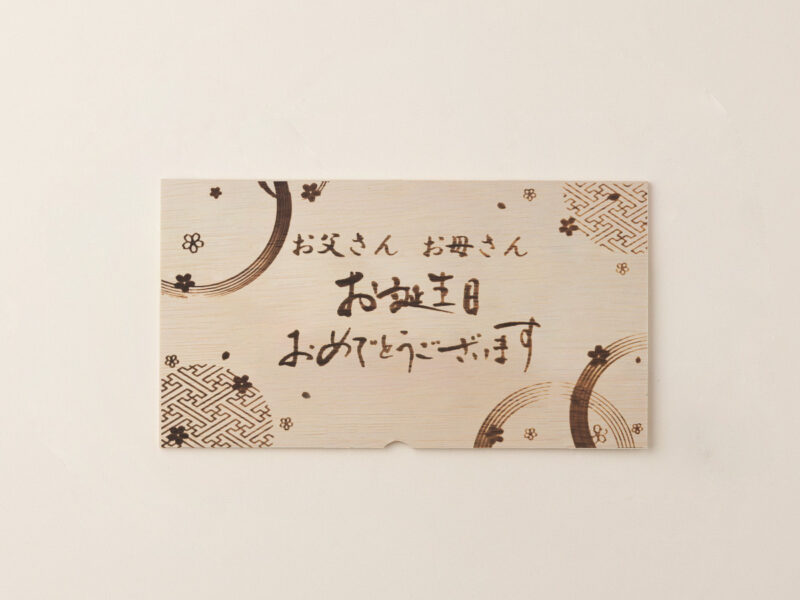 お父さん お母さん
お誕生日
おめでとうございます